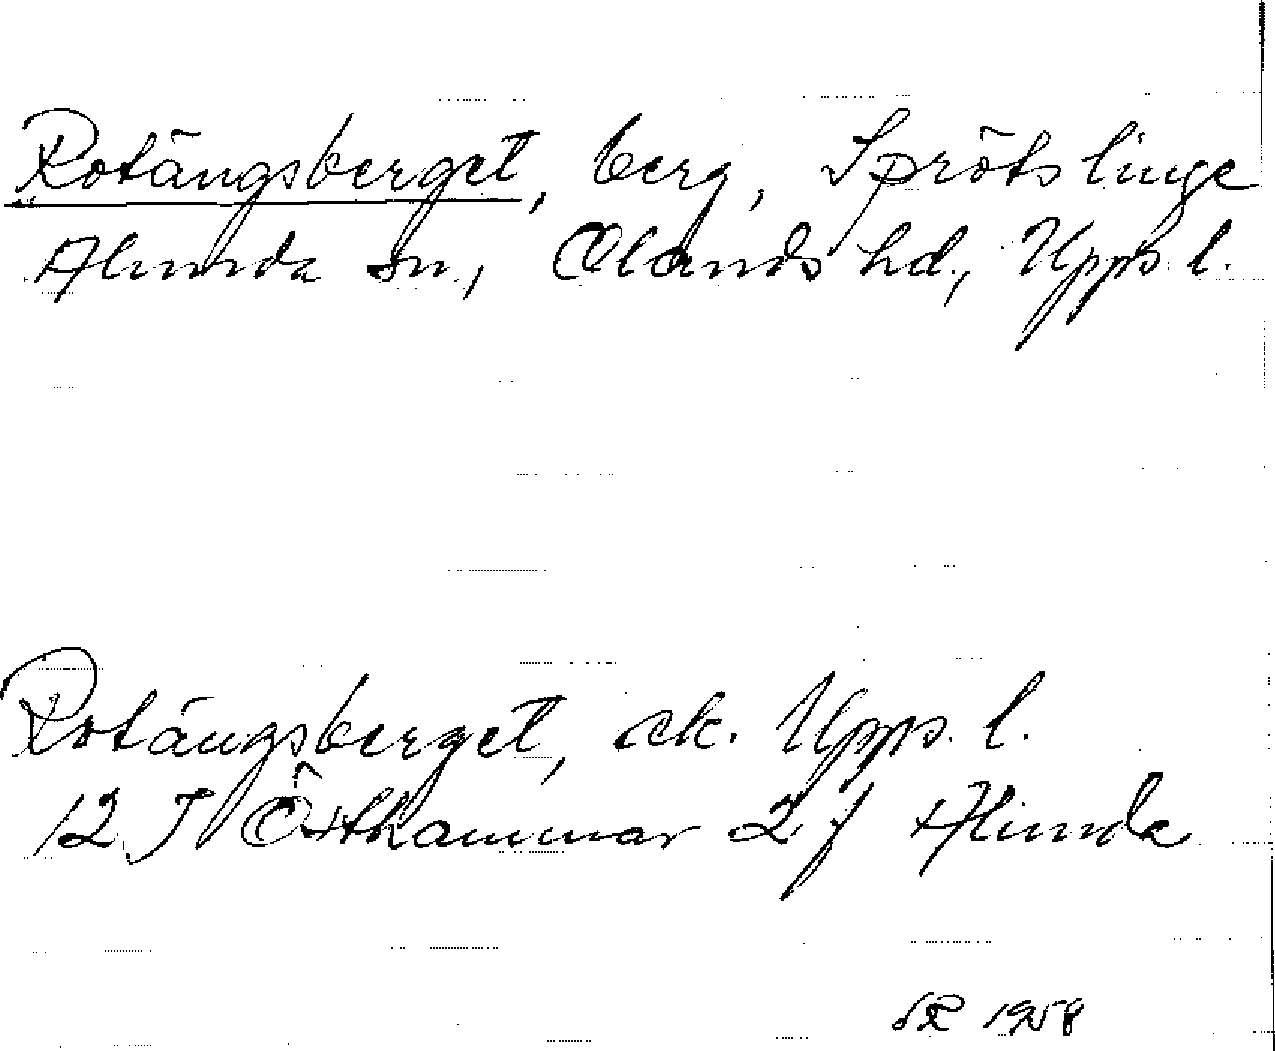 Rotängsberget, berg, Sprötslinge
Alunda sn, Olands hd, Uppl.
Rotängsberget, ek. Uppl.
12 I Östhammar 2 f Alunda
1958